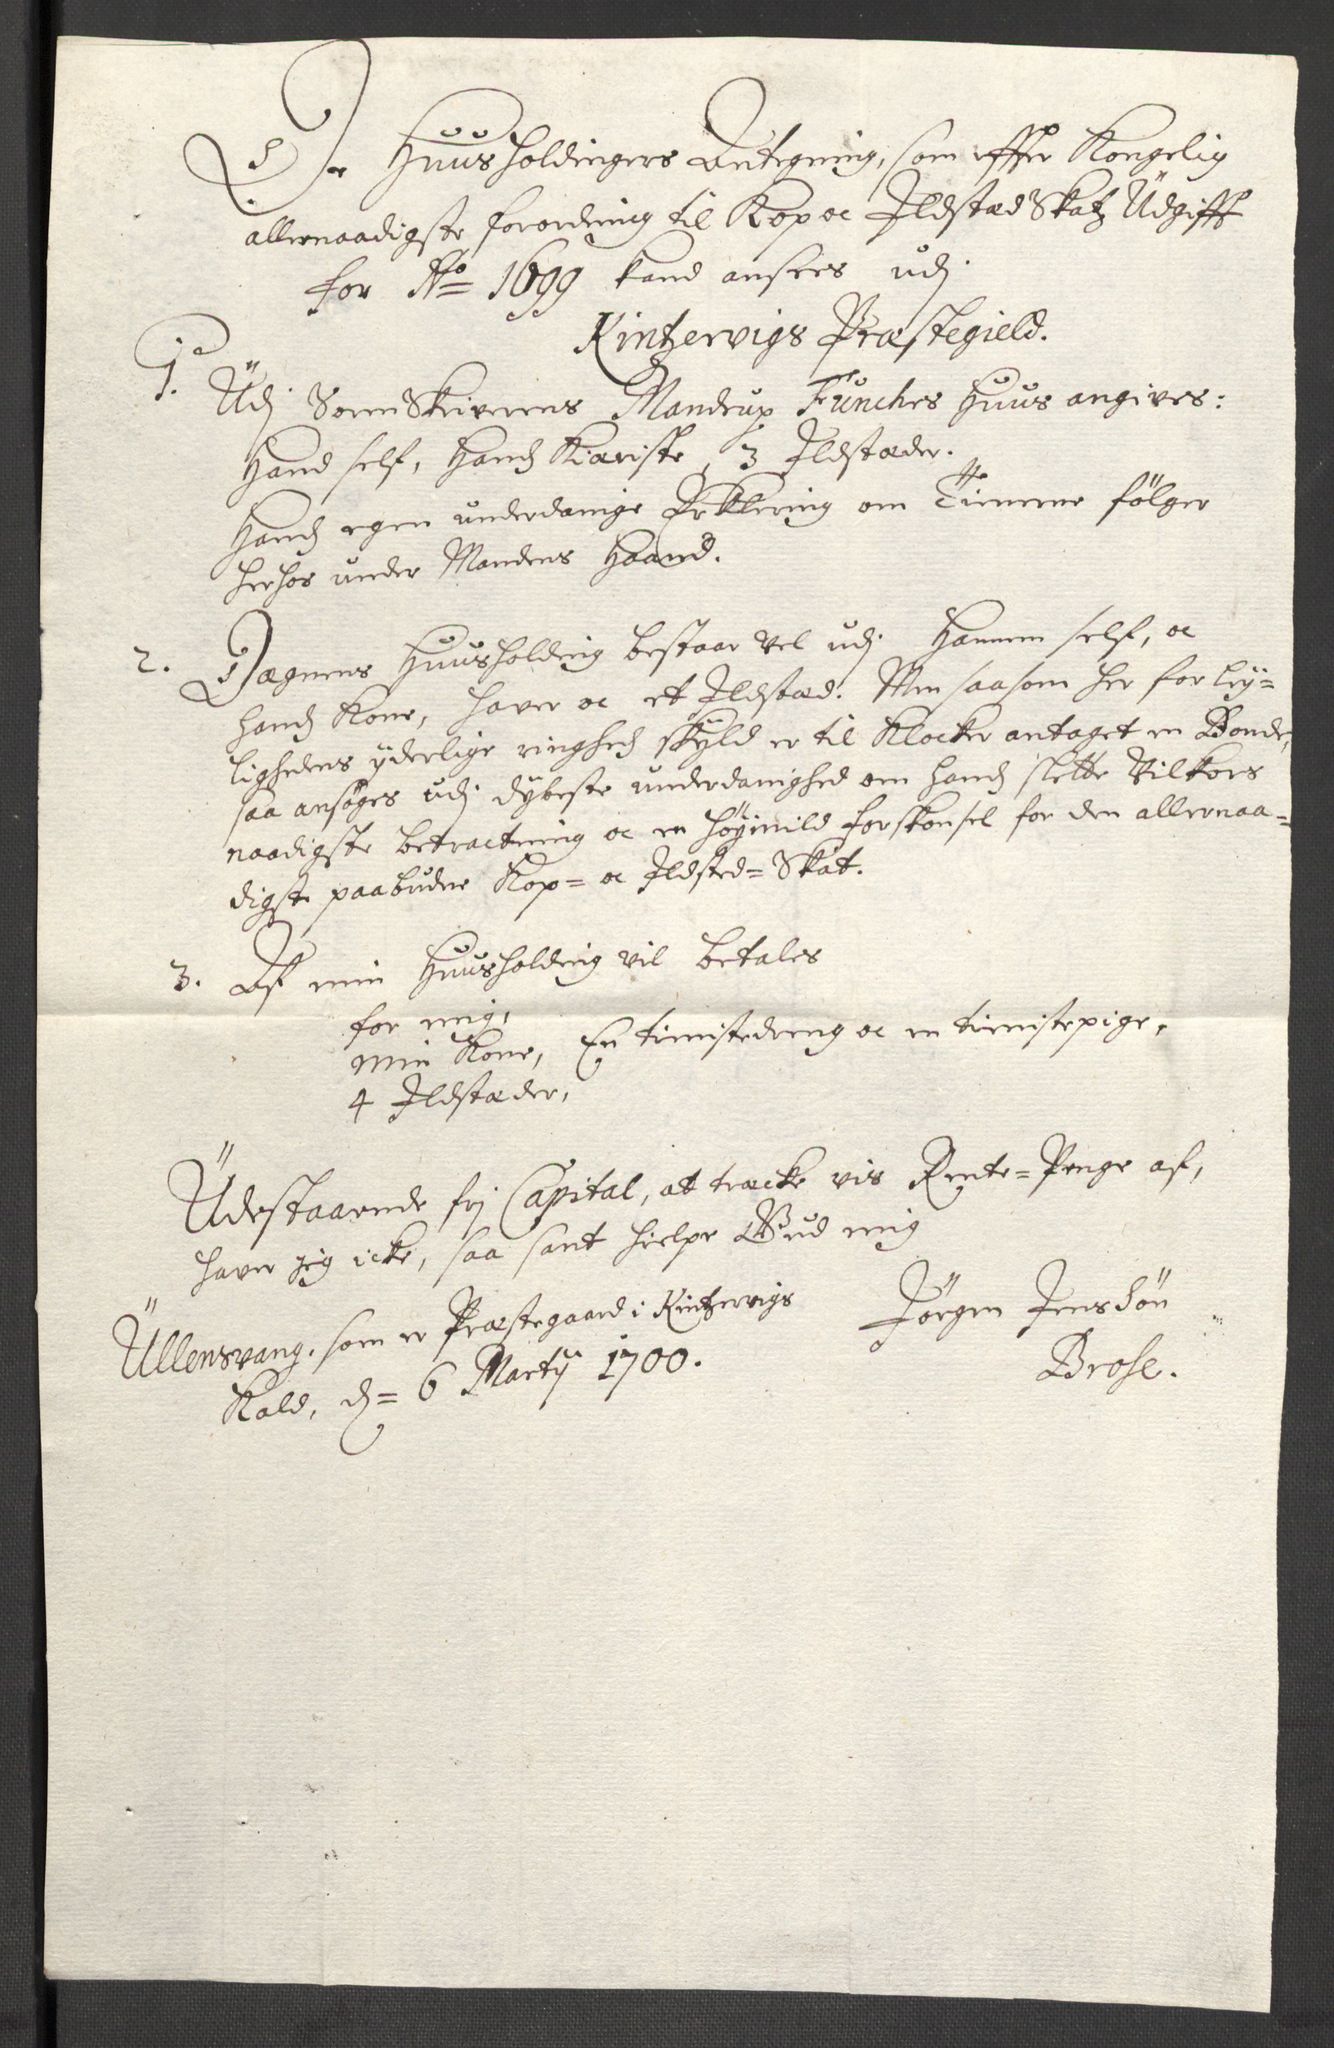 De Huusholdingers Antegning, som effter Kongelig
allernaadigste forordning til Kop oc Ildstæd Skatz Üdgifft
for Ao 1699 kand ansees udj
Kintzervigs Præstegield.
1. Üdj SorenSkriverens Mandrup Funches Huus angives:
Hand self, Hands Kiæriste, 3 Ildstæder.
Hands egen underdanige Erklering om Tienerne følger
herhos under Mandens Haand.
2. Degnens Huusholding bestaar vel udj Hannem self, oc
hands Kone, haver oc et Ildstæd. Men saasom her for Ley=
lighedens yderlige ringheds skyld er til Klocker antaget en Bonde,
saa ansøges udj dybeste underdanighed om hands slette Vilkors
naadigste betractning oc en høymild forskonsel for den allernaa=
digst paabudne Kop= oc Ildsted=Skat.
3. Af min Huusholding vil betales
for mig,
min Kone, En tienistedreng oc en tienistepige,
4 Ildstæder,
Üdestaaende frj Capital, at træcke vis Rente=Penge af,
haver jeg icke, saa sant hielpe Gud mig
Üllensvang, som er Præstegaard i Kintzervigs
Kald, ds= 6 Martij 1700.
Jørgen Jensøn
Brose.